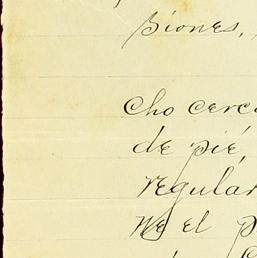 siones,
cho cerc
de pié,
regular
ne el p